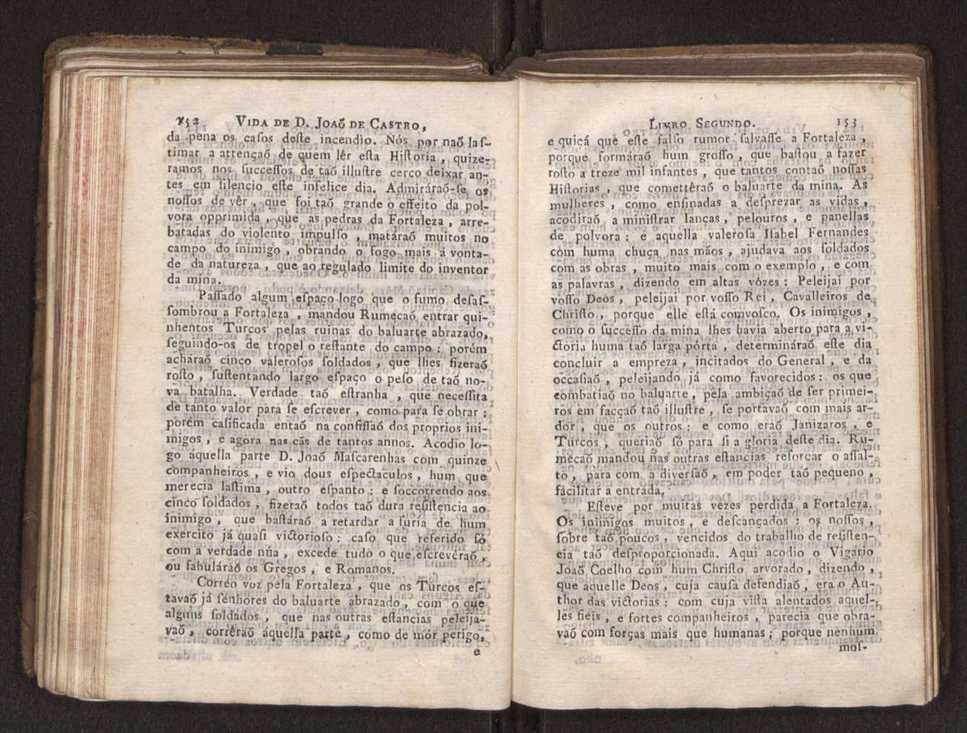 152 VIDA DE D. JOAÕ DE CASTRO,
da pena os casos deste incendio. Nós por naõ las-
timar a attençaõ de quem lêr esta Historia, quize-
ramos nos successos de taõ illustre cerco deixar an-
tes em silencio este infelice dia. Admiráraõ-se os
nossos de vêr, que foi taõ grande o effeito da pol-
vora opprimida, que as pedras da Fortaleza, arre-
batadas do violento impulso, matáraõ muitos no
campo do inimigo, obrando o fogo mais á vonta-
de da natureza, que ao regulado limite do inventor
da mina.
Passado algum espaço logo que o fumo desas-
sombrou a Fortaleza, mandou Rumecaõ entrar qui-
nhentos Turcos pelas ruinas do baluarte abrazado,
seguindo-os de tropel o restante do campo; porém
acháraõ cinco valerosos soldados, que lhes fizeraõ
rosto, sustentando largo espaço o peso de taõ no-
va batalha. Verdade taõ estranha, que necessita
de tanto valor para se escrever, como para se obrar;
porém calificada entaõ na confissaõ dos proprios ini-
migos, e agora nas cãs de tantos annos. Acodio lo-
go áquella parte D. Joaõ Mascarenhas com quinze
companheiros, e vio dous espectaculos, hum que
merecia lastima, outro espanto: e soccorrendo aos
cinco soldados, fizeraõ todos taõ dura resistencia ao
inimigo, que bastáraõ a retardar a furia de hum
exercito já quasi victorioso: caso que referido só
com a verdade núa, excede tudo o que escreveraõ,
ou fabuláraõ os Gregos, e Romanos.
Correo voz pela Fortaleza, que os Turcos es-
tavaõ já senhores do baluarte abrazado, com o que
alguns soldados, que nas outras estancias peleija-
vaõ, corrêraõ áquella parte, como de mór perigo,
e
LIVRO SEGUNDO. 153
e quiçá que este falso rumor salvasse a Fortaleza,
porque formáraõ hum grosso, que bastou a fazer
rosto a treze mil infantes, que tantos contaõ nossas
Historias, que comettêraõ o baluarte da mina. As
mulheres, como ensinadas a desprezar as vidas,
acoditaõ, a ministrar lanças, pelouros, e panellas
de polvora; e aquella valerosa Isabel Fernandes
com huma chuça nas mãos, ajudava aos soldados
com as obras, muito mais com o exemplo, e com
as palavras, dizendo em altas vózes: Peleijai por
vosso Deos, peleijai por vosso Rei, Cavalleiros de
Christo, porque elle está comvosco. Os inimigos,
como o successo da mina lhes havia aberto para a vi-
ctoria huma taõ larga pórta, determináraõ este dia
concluir a empreza, incitados do General, e da
occasiaõ, peleijando já como favorecidos: os que
combatiaõ no baluarte, pela ambiçaõ de ser primei-
ros em facçaõ taõ illustre, se portavaõ com mais ar-
dor, que os outros; e como eraõ Janizaros, e
Turcos, queriaõ só para si a gloria deste dia. Ru-
mecaõ mandou nas outras estancias reforçar o assal-
to, para com a diversaõ, em poder taõ pequeno,
facilitar a entrada.
Esteve por muitas vezes perdida a Fortaleza.
Os inimigos muitos, e descançados; os nossos,
sobre taõ poucos, vencidos do trabalho de resisten-
cia taõ desproporcionada. Aqui acodio o Vigario
Joaõ Coelho com hum Christo arvorado, dizendo,
que aquelle Deos, cuja causa defendiaõ, era o Au-
thor das victorias: com cuja vista alentados aquel-
les fieis, e fortes companheiros, parecia que obra-
vaõ com forças mais que humanas; porque nenhum
mol-